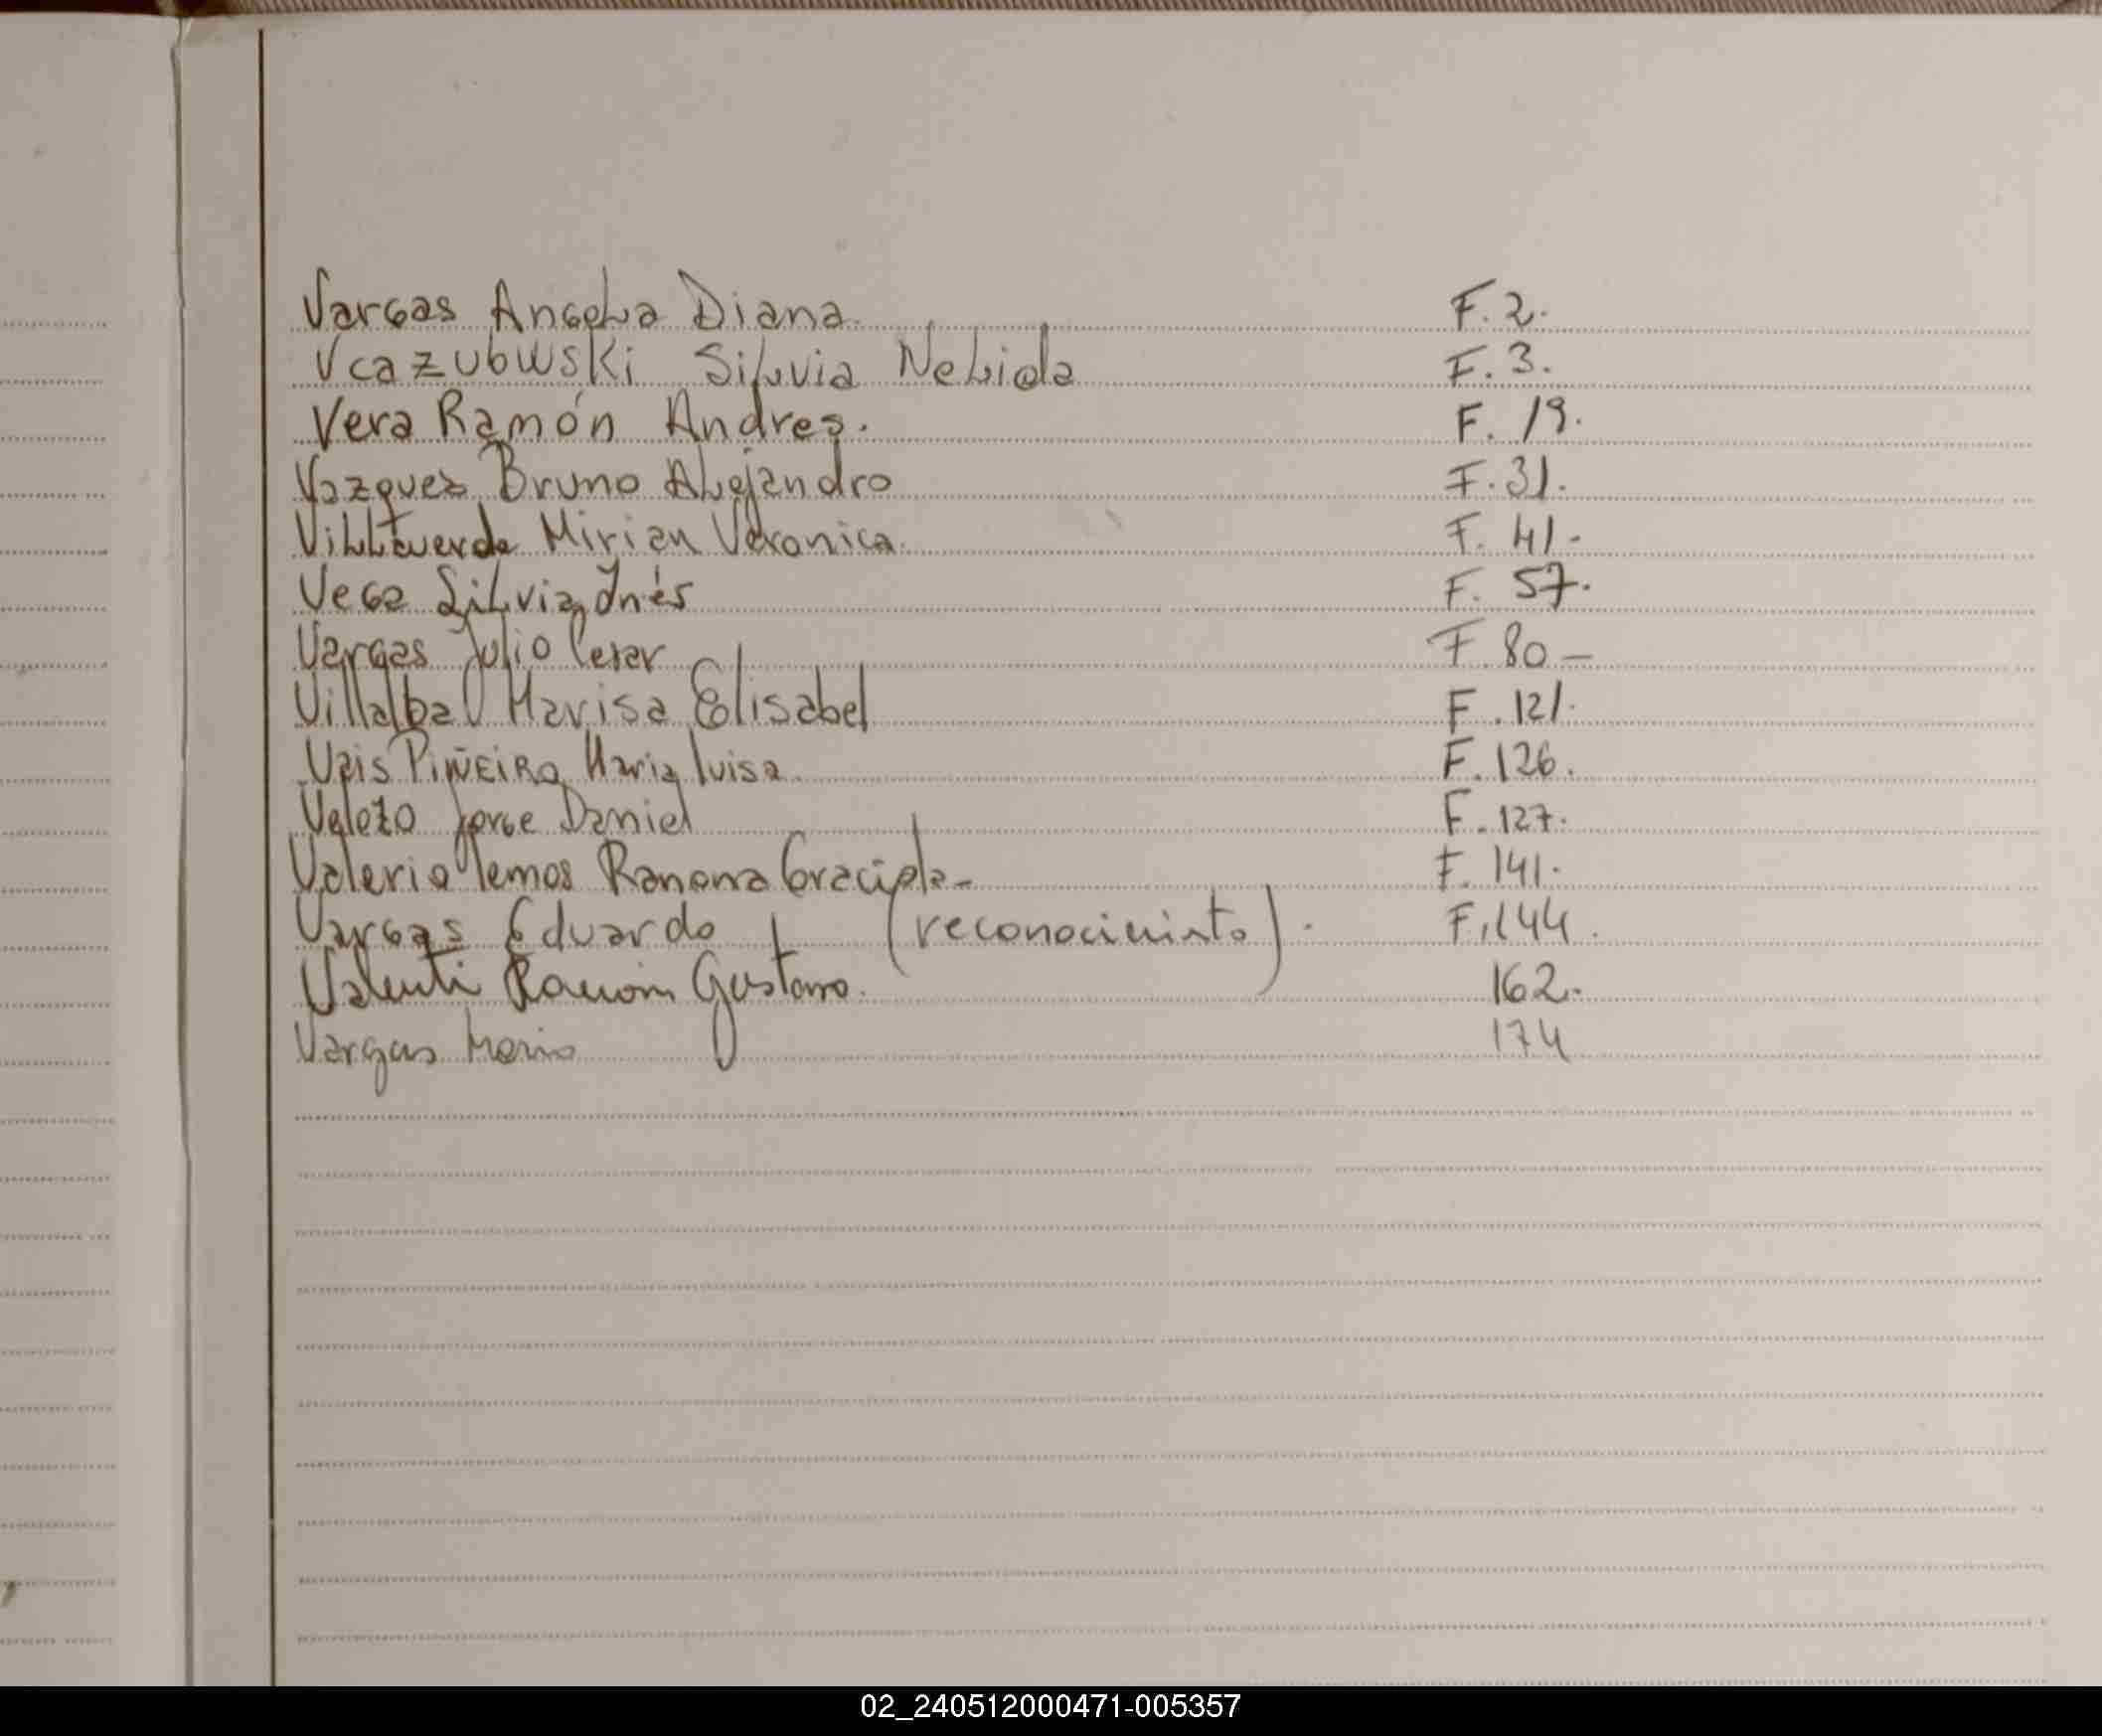 Vargas Angela Diana. F. 2.
Vcazubwski Silvia Nelida F. 3.
Vera Ramón Andres. F. 19.
Vazquez Bruno Alejandro F. 31.
Villaverde Mirian Veronica. F. 41-
Vega Silvia Inés F. 57.
Vargas Julio Cesar F. 80 -
Villalba Marisa Elisabel F. 121.
Vais Piñeiro Maria Luisa. F. 126.
Velozo Jorge Daniel F. 127.
Valerio Lemos Ramona Graciela - F. 141.
Vargas Eduardo (reconocimiento). F. 144.
Valenti Ramón Gustavo. 162.
Vargas Mario 174
02_240512000471-005357